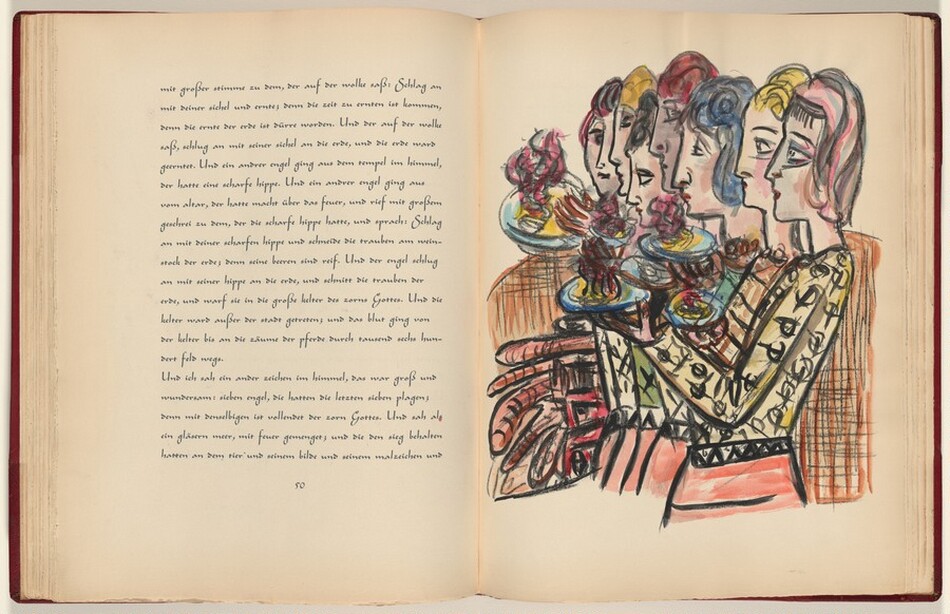 mit großer stimme zu dem, der auf der wolke saß: Schlag an
mit deiner sichel und ernte; denn die zeit zu ernten ist kommen,
denn die ernte der erde ist dürre worden. Und der auf der wolke
saß, schlug an mit seiner sichel an die erde, und die erde ward
geerntet. Und ein andrer engel ging aus dem tempel im himmel,
der hatte eine scharfe hippe. Und ein andrer engel ging aus
vom altar, der hatte macht über das feuer, und rief mit großem
geschrei zu dem, der die scharfe hippe hatte, und sprach: Schlag
an mit deiner scharfen hippe und schneide die trauben am wein-
stock der erde; denn seine beeren sind reif. Und der engel schlug
an mit seiner hippe an die erde, und schnitt die trauben der
erde, und warf sie in die große kelter des zorns Gottes. Und die
kelter ward außer der stadt getreten; und das blut ging von
der kelter bis an die zäume der pferde durch tausend sechs hun-
dert feld wegs.
Und ich sah ein ander zeichen im himmel, das war groß und
wundersam: sieben engel, die hatten die letzten sieben plagen;
denn mit denselbigen ist vollendet der zorn Gottes. Und sah als
ein gläsern meer, mit feuer gemenget; und die den sieg behalten
hatten an dem tier und seinem bilde und seinem malzeichen und
50